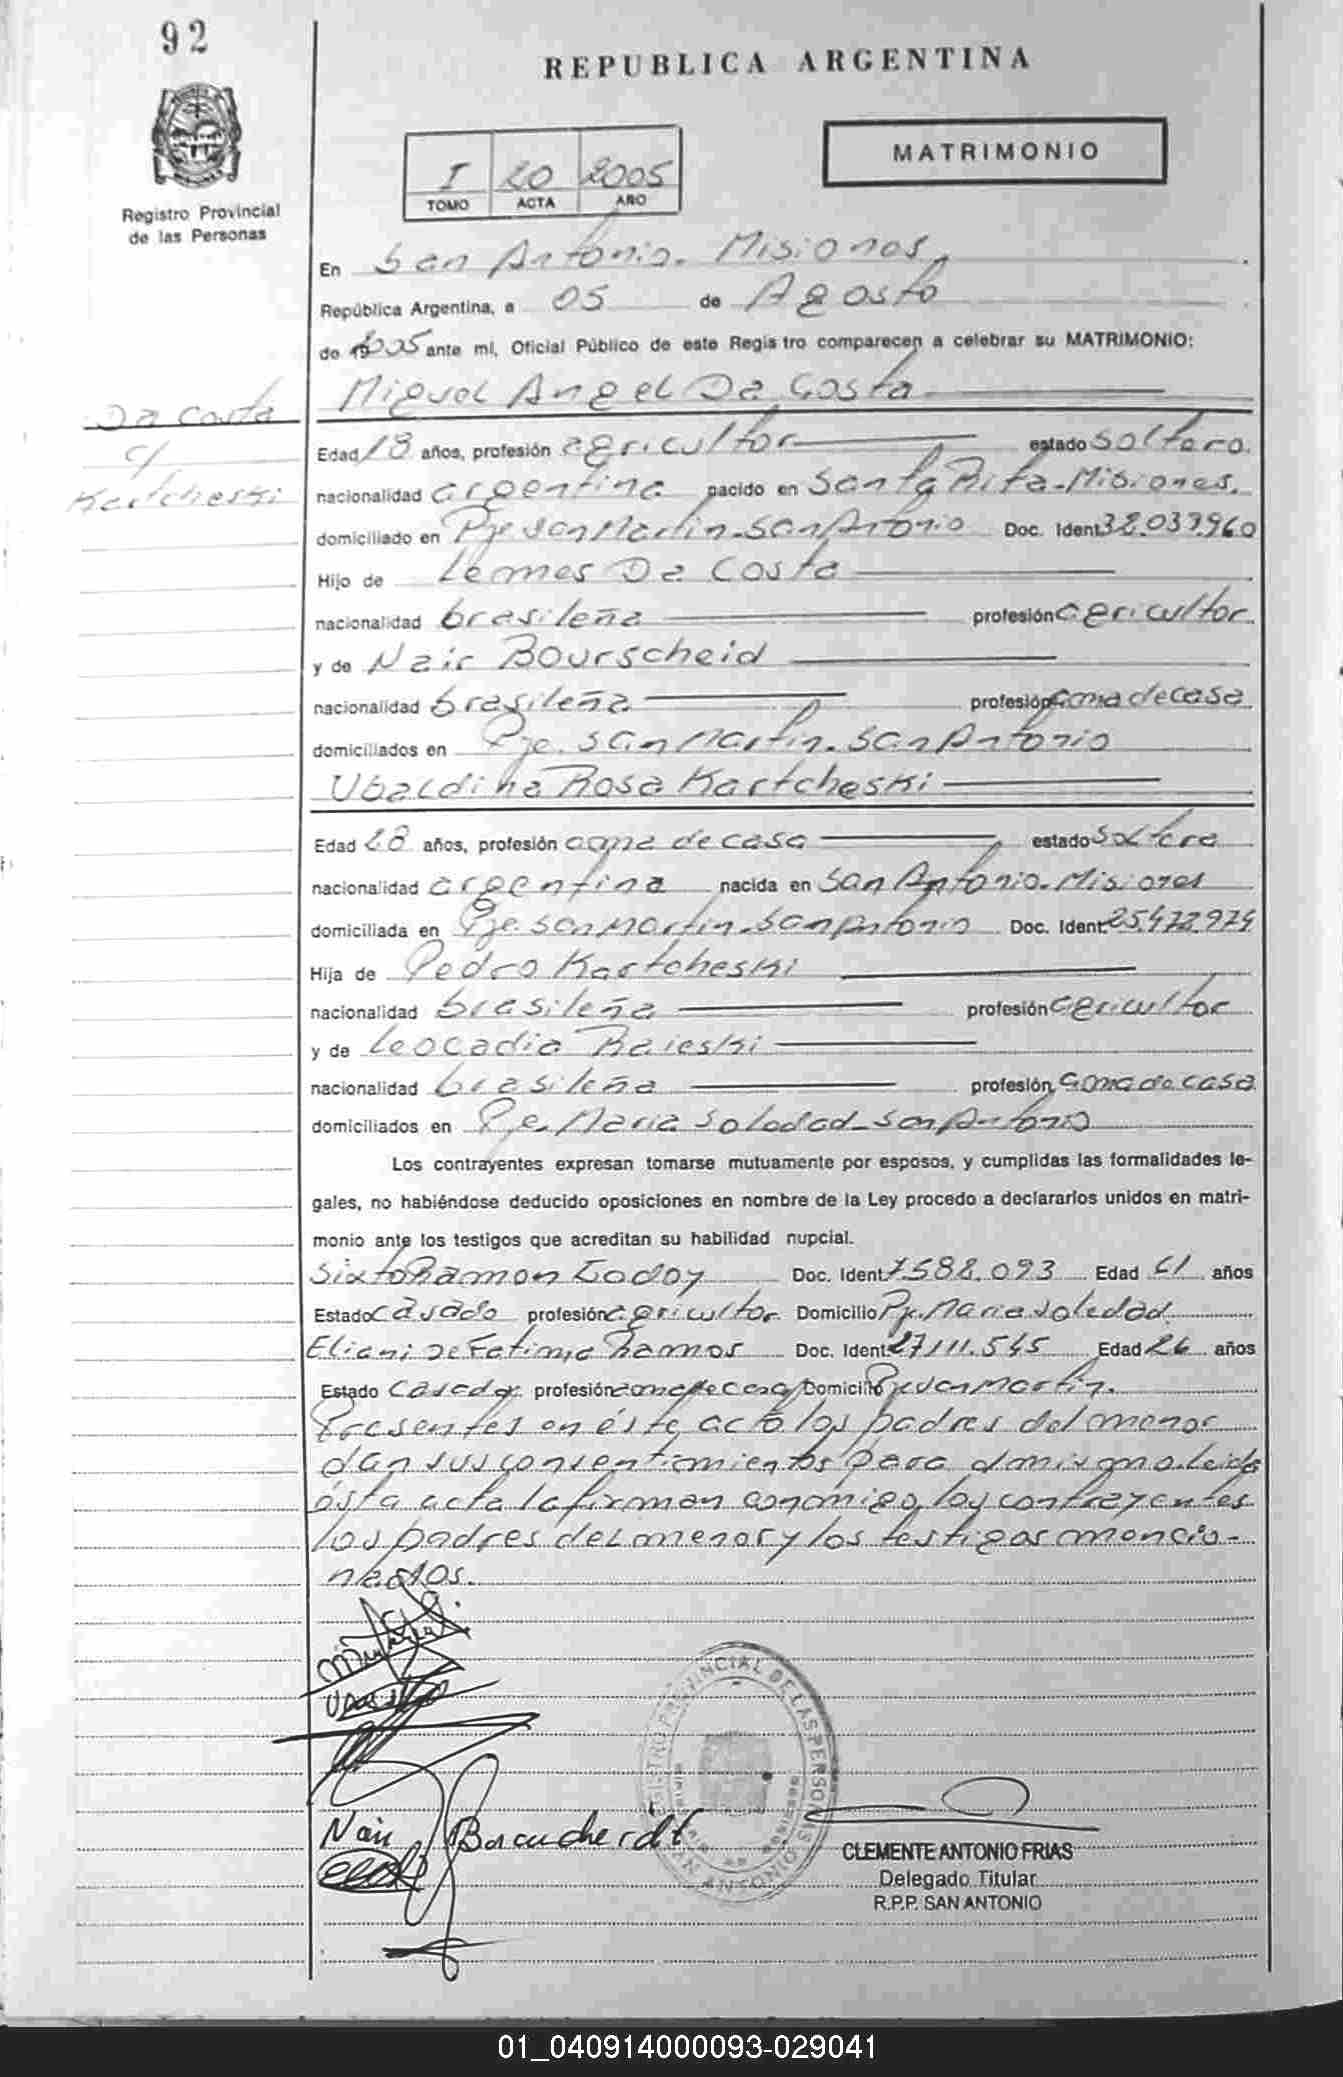 92
REPUBLICA ARGENTINA
Registro Provincial
de las Personas
I 20 2005
TOMO ACTA AÑO
MATRIMONIO
En San Antonio. Misiones
República Argentina, a 05 de Agosto
de 2005 ante mí, Oficial Público de este Registro comparecen a celebrar su MATRIMONIO:
Da Costa
c/
Kartcheski
Miguel Angel Da Costa
Edad 18 años, profesión agricultor estado soltero.
nacionalidad argentina nacido en Santa Rita-Misiones.
domiciliado en Pje San Martin-San Antonio Doc. Ident 32.037.960
Hijo de Lemes Da Costa
nacionalidad brasileña profesión agricultor
y de Nair Bourscheid
nacionalidad brasileña profesión ama de casa
domiciliados en Pje. San Martin. San Antonio
Ubaldina Rosa Kartcheski
Edad 28 años, profesión ama de casa estado soltera
nacionalidad argentina nacida en San Antonio-Misiones
domiciliada en Pje. San Martin-San Antonio Doc. Ident 25.472.974
Hija de Pedro Kartcheski
nacionalidad brasileña profesión agricultor
y de Leocadia Raieski
nacionalidad brasileña profesión ama de casa
domiciliados en Pje. Maria Soledad-San Antonio
Los contrayentes expresan tomarse mutuamente por esposos, y cumplidas las formalidades le-
gales, no habiéndose deducido oposiciones en nombre de la Ley procedo a declararlos unidos en matri-
monio ante los testigos que acreditan su habilidad nupcial.
Sixto Ramon Godoy Doc. Ident 7.588.093 Edad 61 años
Estado casado profesión agricultor Domicilio Pje. Maria Soledad
Eliani De Fatima Ramos Doc. Ident 27.111.545 Edad 26 años
Estado casada profesión ama de casa Domicilio Pje San Martin.
Presentes en éste acto los padres del menor
dan sus consentimientos para el mismo. Leida
ésta acta la firman conmigo, los contrayentes
los padres del menor y los testigos mencio-
nados.
REGISTRO PROVINCIAL DE LAS PERSONAS
SAN ANTONIO
Nair Bourscheidt
CLEMENTE ANTONIO FRIAS
Delegado Titular
R.P.P. SAN ANTONIO
01_040914000093-029041